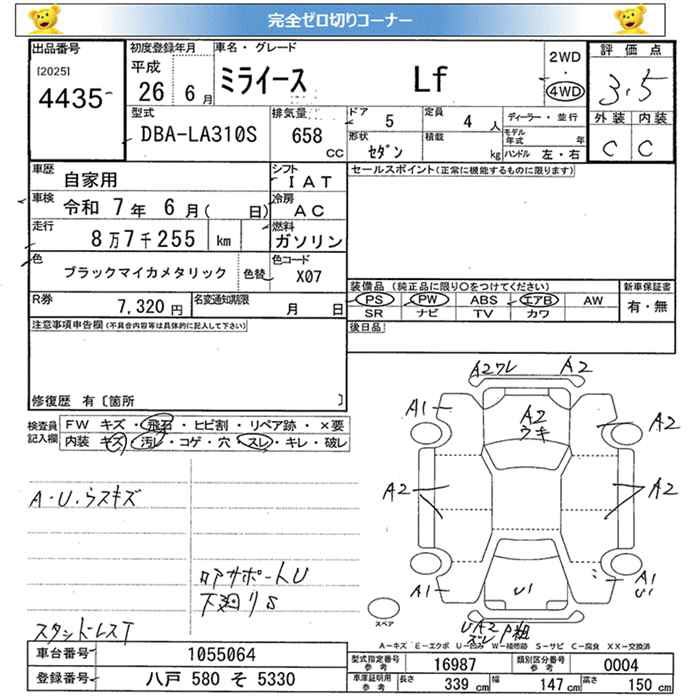 完全ゼロ切りコーナー
出品番号
[2025]
4435
初度登録年月
平成
26 6月
車名・グレード
ミライース Lf
2WD
・
4WD
評価点
3.5
外装 内装
C C
型式
DBA-LA310S
排気量
658
CC
ドア
5
定員
4 人
形状
セダン
積載
kg
ディーラー・並行
モデル
年式 年
ハンドル 左・右
車歴
自家用
シフト
IAT
車検
令和 7年 6月( 日)
冷房
AC
走行
8万7千255 km
燃料
ガソリン
色
ブラックマイカメタリック
色替
色コード
X07
R券
7,320円
名変通知期限
月 日
セールスポイント(正常に機能するものに限ります)
装備品(純正品に限り○をつけてください)
PS PW ABS エアB AW
SR ナビ TV カワ
新車保証書
有・無
後日品
注意事項申告欄(不具合内容等は具体的に記入して下さい)
修復歴 有〔箇所 〕
検査員
記入欄
FW キズ・飛石・ヒビ割・リペア跡・×要
内装 キズ・汚レ・コゲ・穴・スレ・キレ・破レ
A・U・ウスキズ
ロアサポートU
下廻りS
スタッドレスT
A2ワレ A2
A1
A2
ウキ
A2
A2
A2
A1
U1
A1
U1
UA2
ズレ P粗
スペア
A-キズ E-エクボ U-凹み W-補修跡 S-サビ C-腐食 XX-交換済
車台番号
1055064
登録番号
八戸 580 そ 5330
型式指定番号
参考
16987
類別区分番号
参考
0004
車庫証明用
参考
長さ
339 cm
幅
147 cm
高さ
150 cm